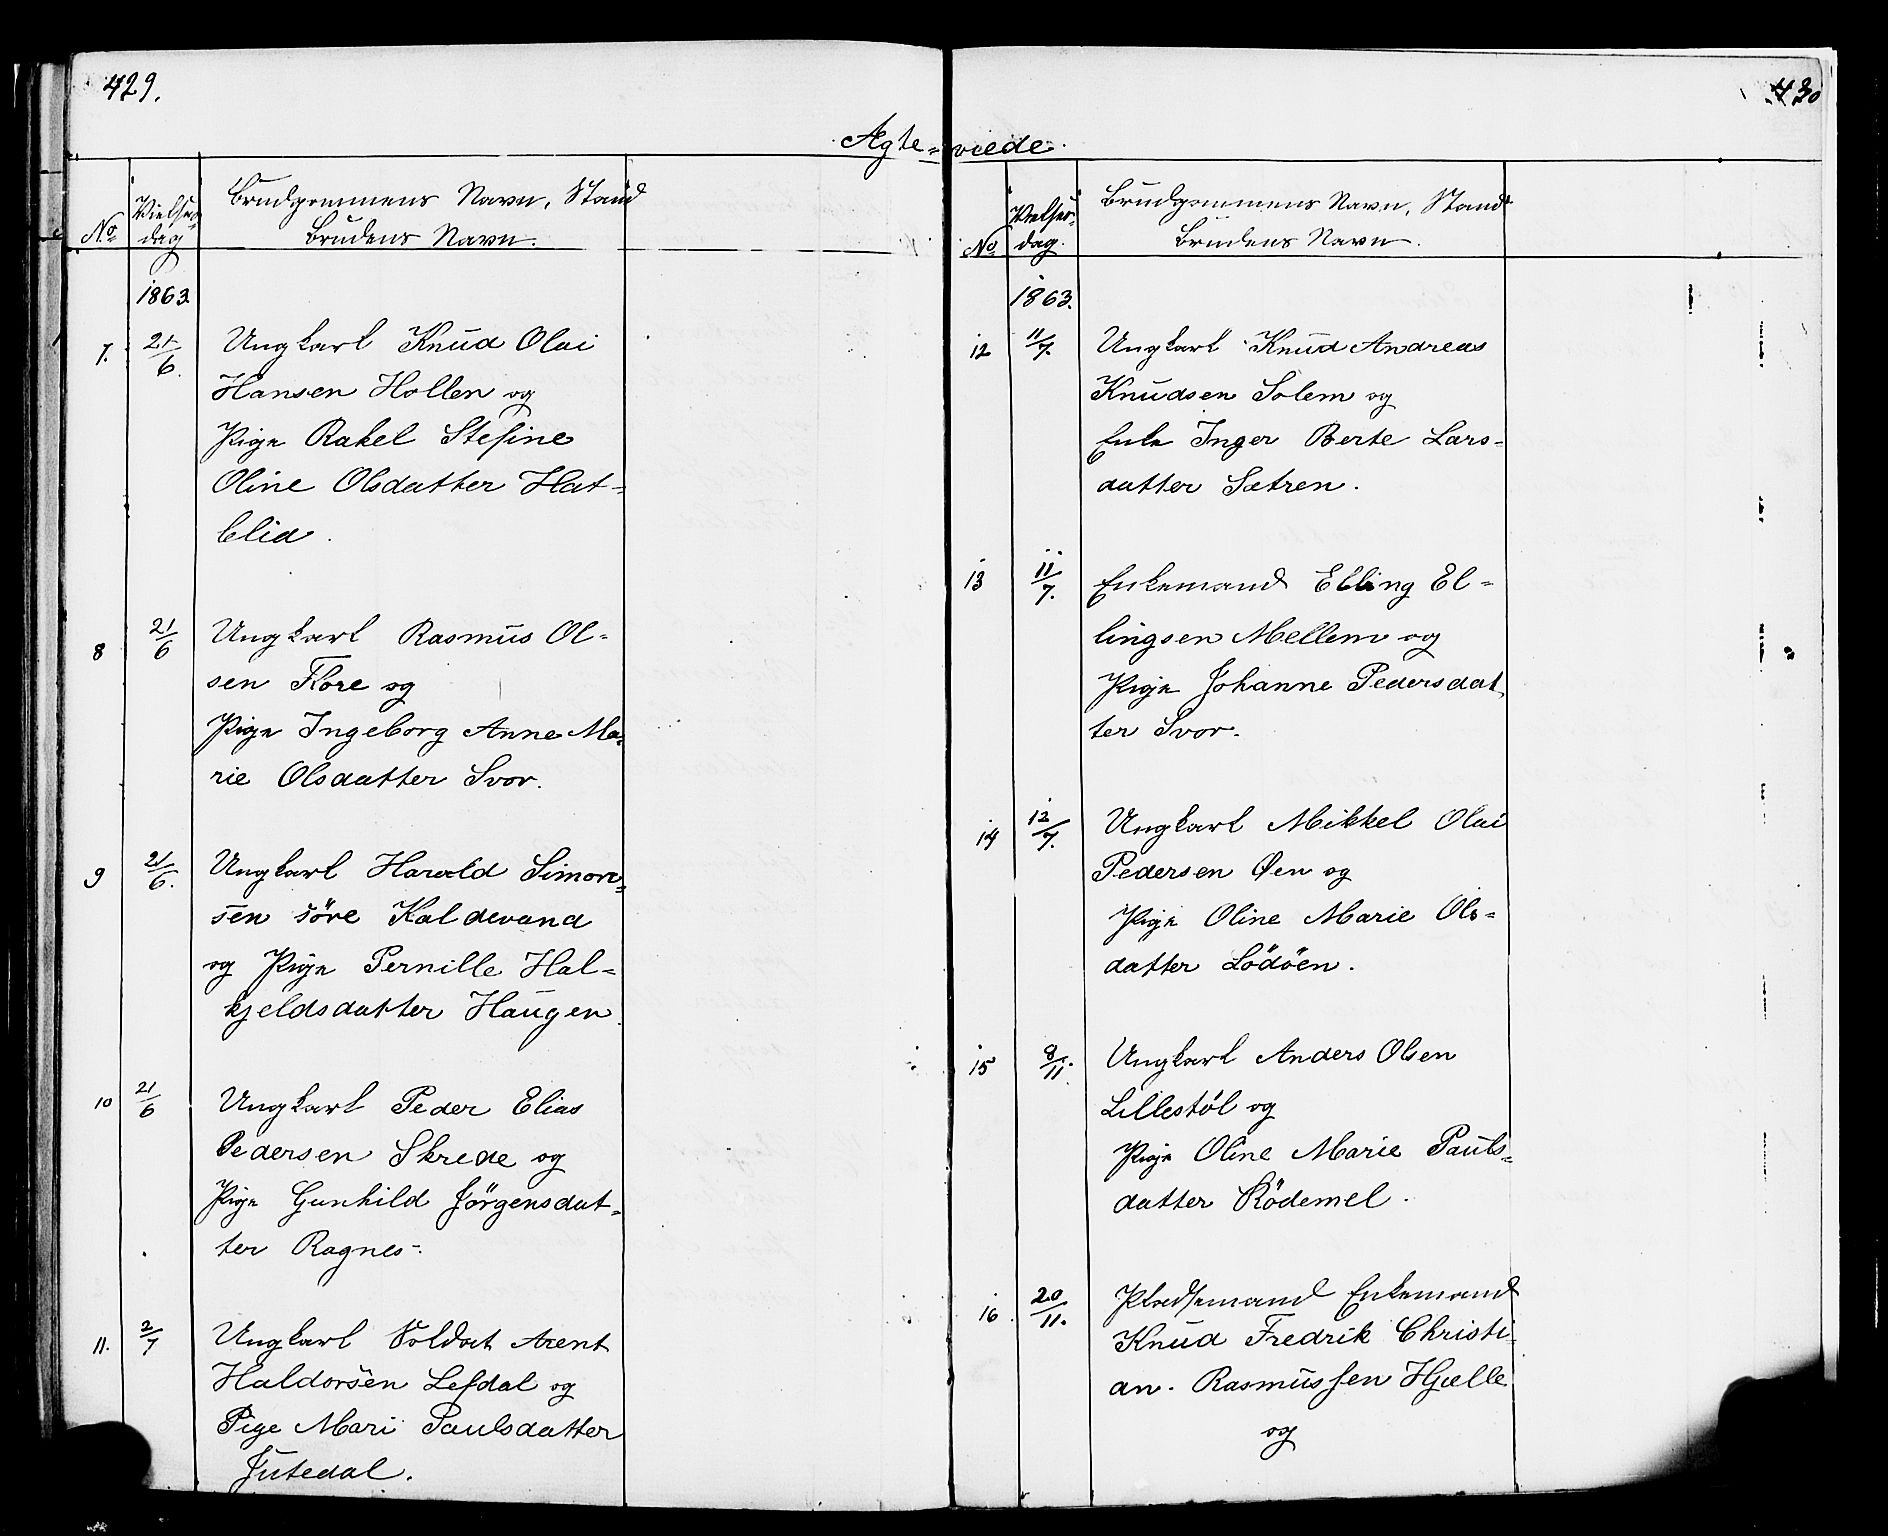 429.
Ægte-
No
Vielses-
dag
Brudgommens Navn, Stand
Brudens Navn.
1863.
7.
21/6.
Ungkarl Knud Olai
Hansen Hollen og
Pige Rakel Stefine
Oline Olsdatter Hat-
lelid.
8
21/6
Ungkarl Rasmus Ol-
sen Flore og
Pige Ingeborg Anne Ma-
rie Olsdatter Svor.
9
21/6.
Ungkarl Harald Simon-
sen søre Kaldevand
og Pige Pernille Hal-
kjeldsdatter Haugen.
10
21/6
Ungkarl Peder Elias
Pedersen Skrede og
Pige Gunhild Jörgensdat-
ter Ragnes.
11.
2/7
Ungkarl Soldat Arent
Haldorsen Lefdal og
Pige Mari Paulsdatter
Jutedal.
430
viede.
No
Vielses-
dag.
Brudgommens Navn, Stand
Brudens Navn.
1863.
12
11/7.
Ungkarl Knud Andreas
Knudsen Solem og
Enke Inger Berte Lars-
datter Sætren.
13
11/7.
Enkemand Elling El-
lingsen Mellem og
Pige Johanne Pedersdat
ter Svor.
14
12/7.
Ungkarl Mikkel Olai
Pedersen Øen og
Pige Oline Marie Ols-
datter Lödöen.
15
8/11.
Ungkarl Anders Olsen
Lillestöl og
Pige Oline Marie Pauls-
datter Rödemel.
16.
20/11.
Pladsemand Enkemand
Knud Fredrik Christi-
an. Rasmussen Hjelle
og